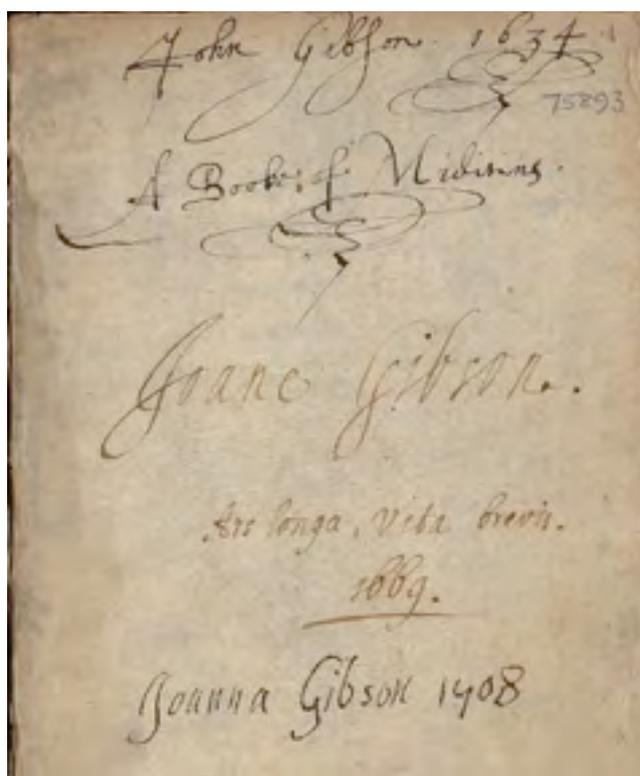 John Gibson. 1634
75893
A Booke of Midicins.
Joane Gibson.
Ars longa, vita brevis.
1669.
Joanna Gibson 1708